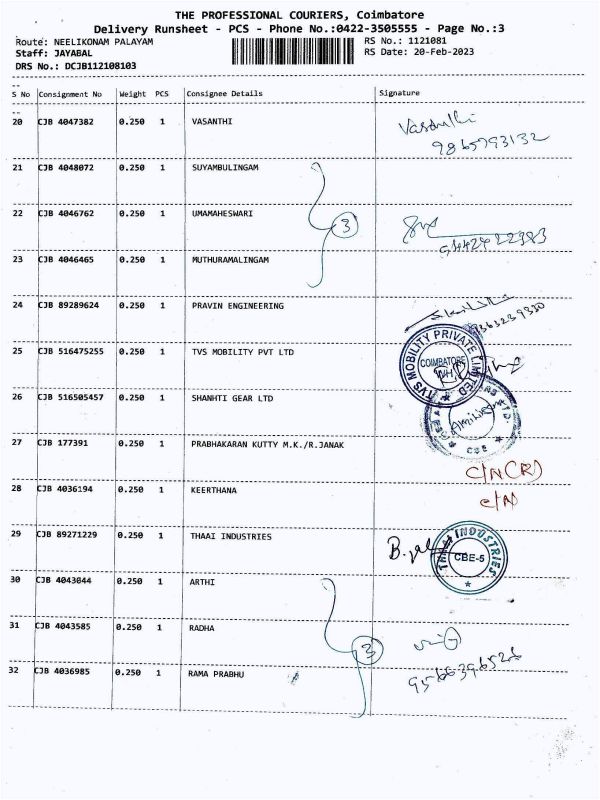 THE PROFESSIONAL COURIERS, Coimbatore
Delivery Runsheet - PCS - Phone No.:0422-3505555 - Page No.:3
Route: NEELIKONAM PALAYAM RS No.: 1121081
Staff: JAYABAL RS Date: 20-Feb-2023
DRS No.: DCJB112108103
--
S No Consignment No Weight PCS Consignee Details Signature
--
20 CJB 4047382 0.250 1 VASANTHI Vasanthi
9865793132
21 CJB 4048072 0.250 1 SUYAMBULINGAM
22 CJB 4046762 0.250 1 UMAMAHESWARI 3
9442422383
23 CJB 4046465 0.250 1 MUTHURAMALINGAM
24 CJB 89289624 0.250 1 PRAVIN ENGINEERING
9363239330
25 CJB 516475255 0.250 1 TVS MOBILITY PVT LTD TVS MOBILITY PRIVATE LIMITED COIMBATORE WH
26 CJB 516505457 0.250 1 SHANHTI GEAR LTD
CBE
27 CJB 177391 0.250 1 PRABHAKARAN KUTTY M.K./R.JANAK C/N(R)
28 CJB 4036194 0.250 1 KEERTHANA C/N
29 CJB 89271229 0.250 1 THAAI INDUSTRIES THAAI INDUSTRIES CBE-5
30 CJB 4043044 0.250 1 ARTHI
31 CJB 4043585 0.250 1 RADHA 3
32 CJB 4036985 0.250 1 RAMA PRABHU